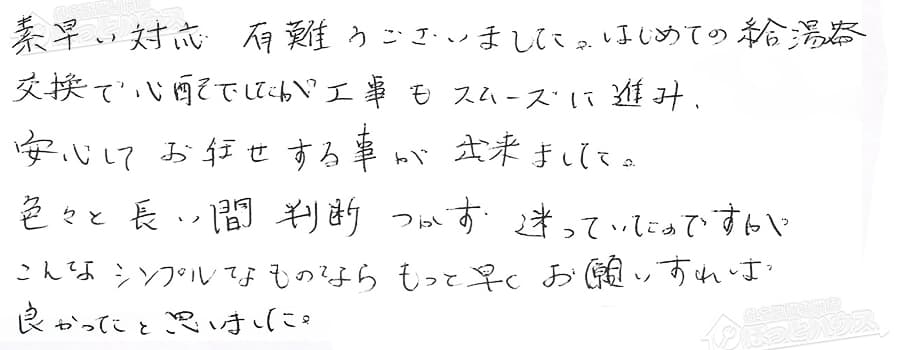 素早い対応 有難うございました。はじめての給湯器
交換で心配でしたが工事もスムーズに進み、
安心してお任せする事が出来ました。
色々と長い間 判断 つかず 迷っていたのですが
こんなシンプルなものなら もっと早くお願いすれば
良かったと思いました。